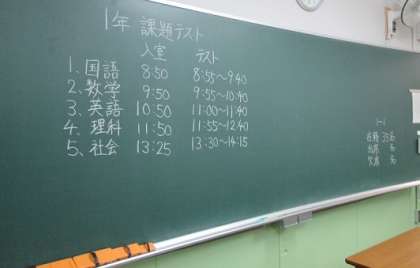 1年 課題テスト
入室 テスト
1. 国語 8:50 8:55~9:40
2. 数学 9:50 9:55~10:40
3. 英語 10:50 11:00~11:40
4. 理科 11:50 11:55~12:40
5. 社会 13:25 13:30~14:15
1-1
在籍 35名
出席 名
欠席 名